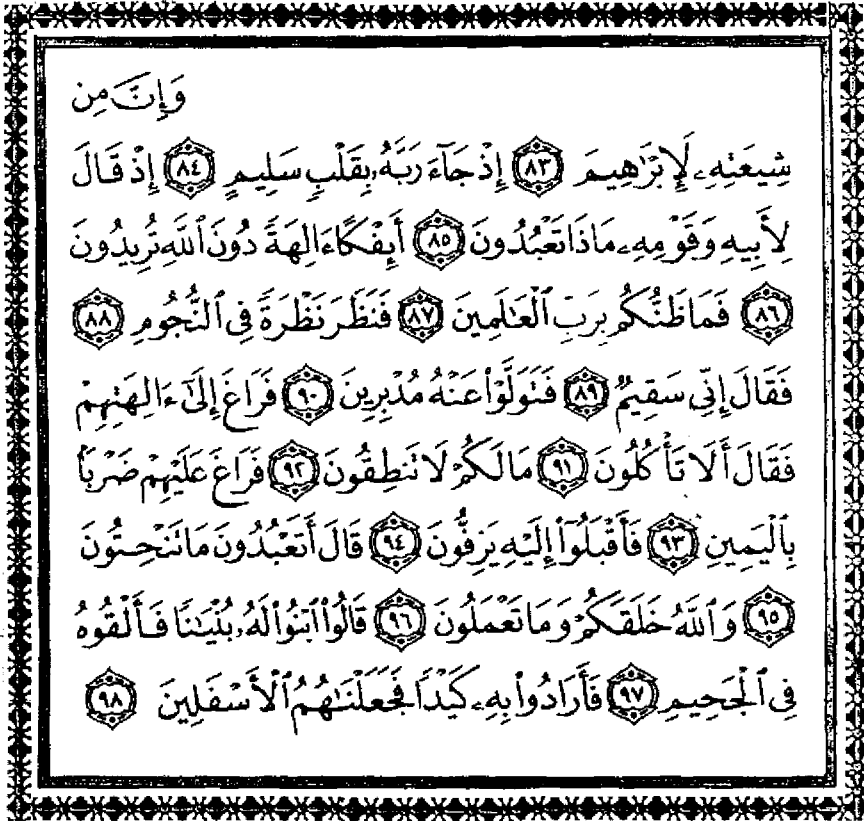 وَإِنَّ مِن
شِيعَتِهِۦ لَإِبْرَٰهِيمَ ٨٣ إِذْ جَآءَ رَبَّهُۥ بِقَلْبٍ سَلِيمٍ ٨٤ إِذْ قَالَ
لِأَبِيهِ وَقَوْمِهِۦ مَاذَا تَعْبُدُونَ ٨٥ أَئِفْكًا ءَالِهَةً دُونَ ٱللَّهِ تُرِيدُونَ
٨٦ فَمَا ظَنُّكُم بِرَبِّ ٱلْعَٰلَمِينَ ٨٧ فَنَظَرَ نَظْرَةً فِى ٱلنُّجُومِ ٨٨
فَقَالَ إِنِّى سَقِيمٌ ٨٩ فَتَوَلَّوْا۟ عَنْهُ مُدْبِرِينَ ٩٠ فَرَاغَ إِلَىٰٓ ءَالِهَتِهِمْ
فَقَالَ أَلَا تَأْكُلُونَ ٩١ مَا لَكُمْ لَا تَنطِقُونَ ٩٢ فَرَاغَ عَلَيْهِمْ ضَرْبًۢا
بِٱلْيَمِينِ ٩٣ فَأَقْبَلُوٓا۟ إِلَيْهِ يَزِفُّونَ ٩٤ قَالَ أَتَعْبُدُونَ مَا تَنْحِتُونَ
٩٥ وَٱللَّهُ خَلَقَكُمْ وَمَا تَعْمَلُونَ ٩٦ قَالُوا۟ ٱبْنُوا۟ لَهُۥ بُنْيَٰنًا فَأَلْقُوهُ
فِى ٱلْجَحِيمِ ٩٧ فَأَرَادُوا۟ بِهِۦ كَيْدًا فَجَعَلْنَٰهُمُ ٱلْأَسْفَلِينَ ٩٨